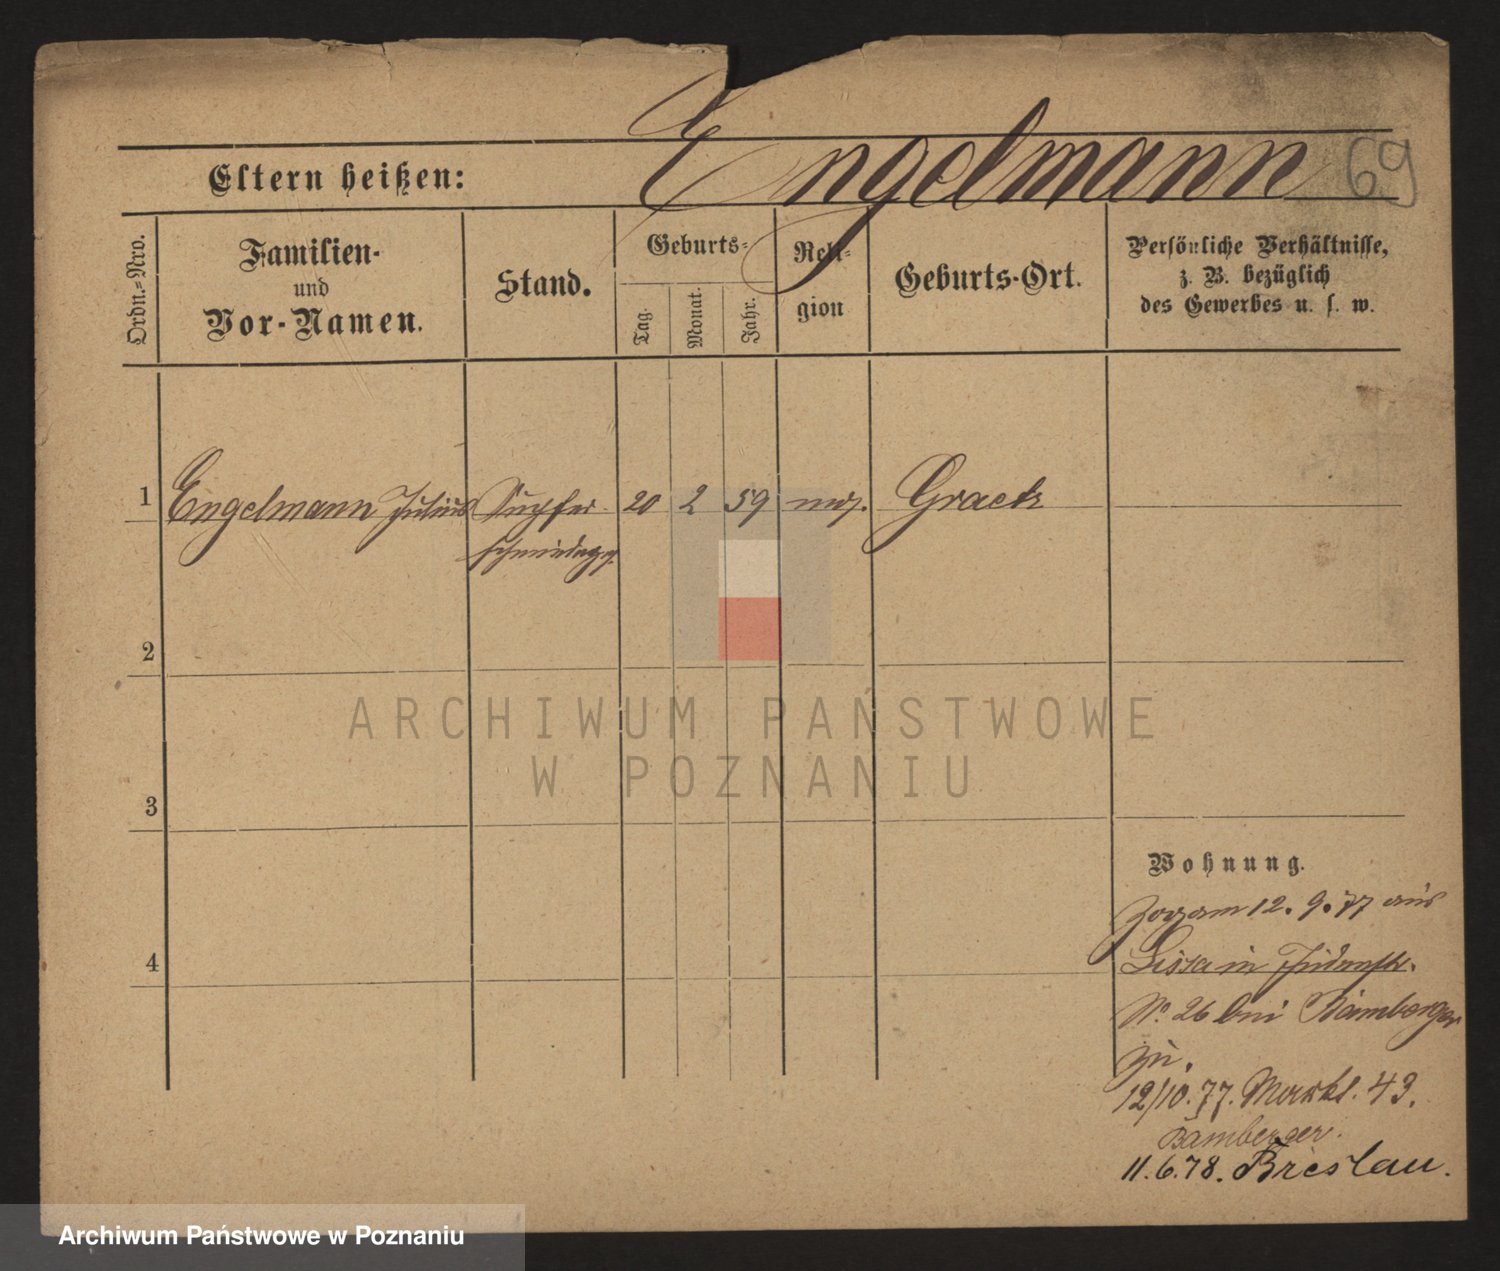 Engelmann 69
Eltern heißen:
Ordn.-Nro.
Familien-
und
Vor-Namen.
Stand.
Geburts-
Tag.
Monat.
Jahr.
Reli-
gion
Geburts-Ort.
Persönliche Verhältnisse,
z. B. bezüglich
des Gewerbes u. s. w.
1 Engelmann Julius Kupfer- 20 2 59 Graetz
schmiedegeh.
2
3
4
Wohnung.
Zog am 12. 9. 77 aus
Lissa in Judenstr.
No. 26 bei Bamberger
zu.
12/10. 77. Markt. 43.
Bamberger.
11. 6. 78. Breslau.
ARCHIWUM PAŃSTWOWE
W POZNANIU
Archiwum Państwowe w Poznaniu